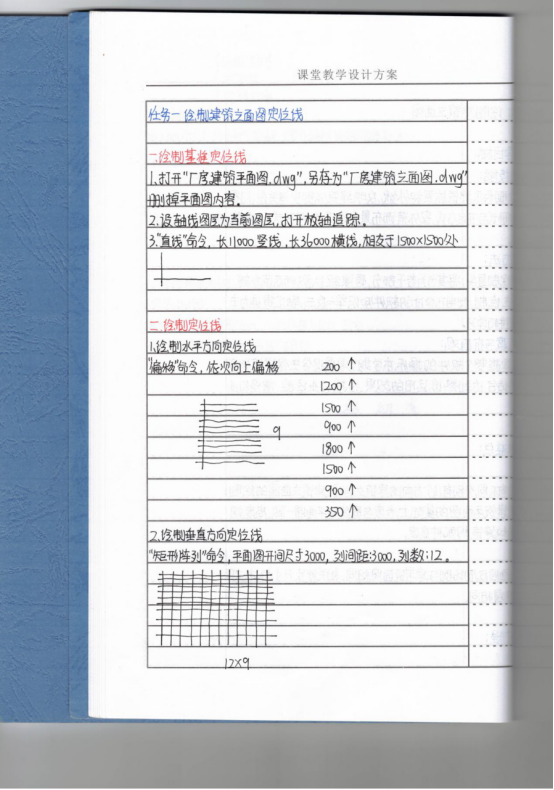 课堂教学设计方案
任务一 绘制建筑立面图定位线
一.绘制基准定位线
1.打开"厂房建筑平面图.dwg",另存为"厂房建筑立面图.dwg"
删掉平面图内容。
2.设轴线图层为当前图层,打开极轴追踪。
3."直线"命令,长11000竖线,长36000横线,相交于1500×1500处
二.绘制定位线
1.绘制水平方向定位线
"偏移"命令,依次向上偏移 200↑
1200↑
1500↑
900↑
9
1800↑
1500↑
900↑
350↑
2.绘制垂直方向定位线
"矩形阵列"命令,平面图开间尺寸3000,列间距:3000,列数:12。
12×9